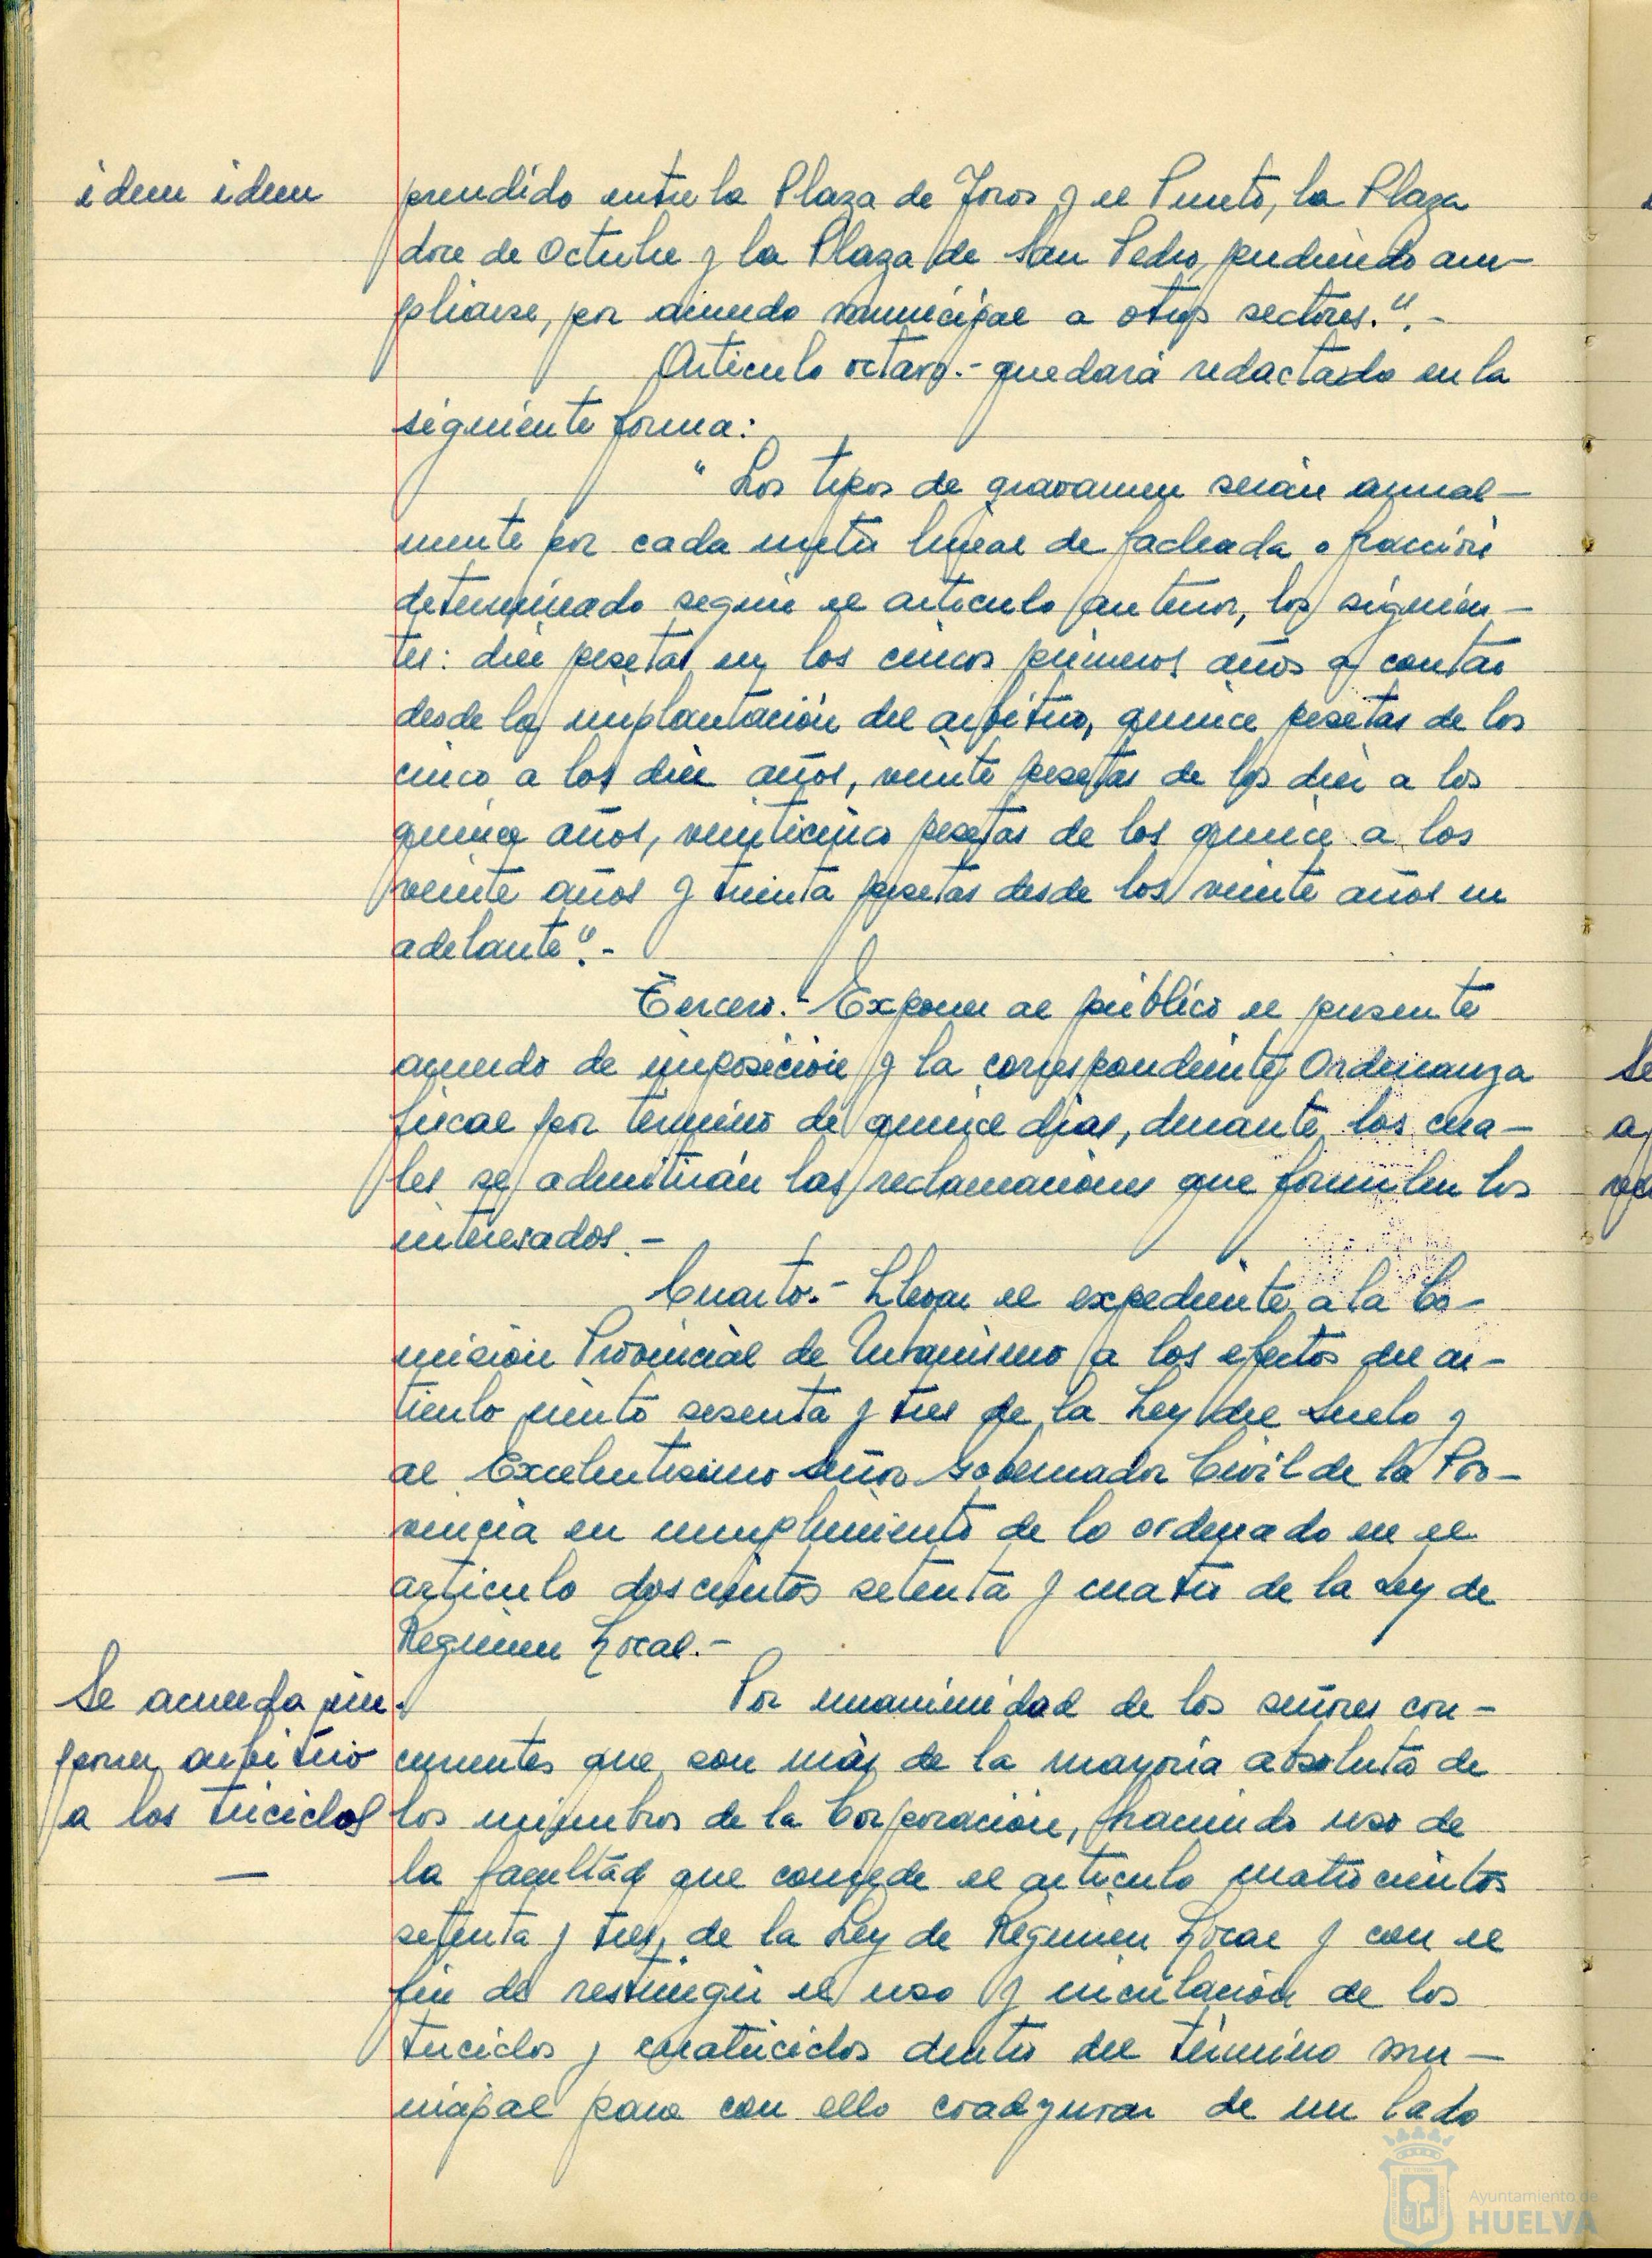 idem idem
prendido entre la Plaza de Toros y el Punto, la Plaza
doce de Octubre y la Plaza de San Pedro, pudiendo am-
pliarse, por acuerdo municipal a otros sectores.".-
Artículo octavo.- quedará redactado en la
siguiente forma:
" Los tipos de gravamen serán anual-
mente por cada metro lineal de fachada o fracción
determinado según el artículo anterior, los siguien-
tes: diez pesetas en los cincos primeros años a contar
desde la implantación del arbitrio, quince pesetas de los
cinco a los diez años, veinte pesetas de los diez a los
quince años, veinticinco pesetas de los quince a los
veinte años y treinta pesetas desde los veinte años en
adelante".-
Tercero.- Exponer al público el presente
acuerdo de imposición y la correspondiente Ordenanza
fiscal por término de quince días, durante los cua-
les se admitirán las reclamaciones que formulen los
interesados.-
Cuarto.- Llevar el expediente a la Co-
misión Provincial de Urbanismo a los efectos del ar-
tículo ciento sesenta y tres de la Ley del Suelo y
al Excelentísimo Señor Gobernador Civil de la Pro-
vincia en cumplimiento de lo ordenado en el
artículo doscientos setenta y cuatro de la Ley de
Régimen Local.-
Se acuerda im-
poner arbitrio
a los triciclos
—
Por unanimidad de los señores con-
currentes que son más de la mayoría absoluta de
los miembros de la Corporación, haciendo uso de
la facultad que concede el artículo cuatrocientos
setenta y tres, de la Ley de Régimen Local y con el
fin de restringir el uso y circulación de los
triciclos y cuatriciclos dentro del término mu-
nicipal para con ello coadyuvar de un lado
Ayuntamiento de
HUELVA